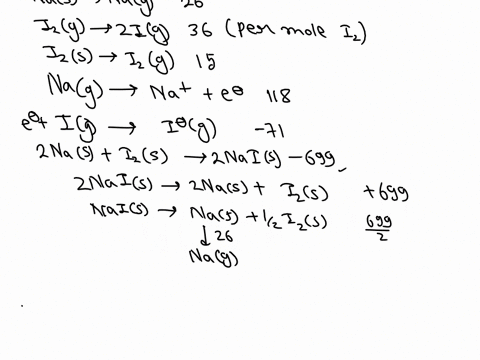 Na(s) → Na(g) 26
I₂(g) → 2I(g) 36 (per mole I₂)
I₂(s) → I₂(g) 15
Na(g) → Na⁺ + e⊖ 118
e⊖ + I(g) → I⊖(g) -71
2Na(s) + I₂(s) → 2NaI(s) - 699
2NaI(s) → 2Na(s) + I₂(s) +699
NaI(s) → Na(s) + 1/2 I₂(s) 699/2
↓ 26
Na(g)